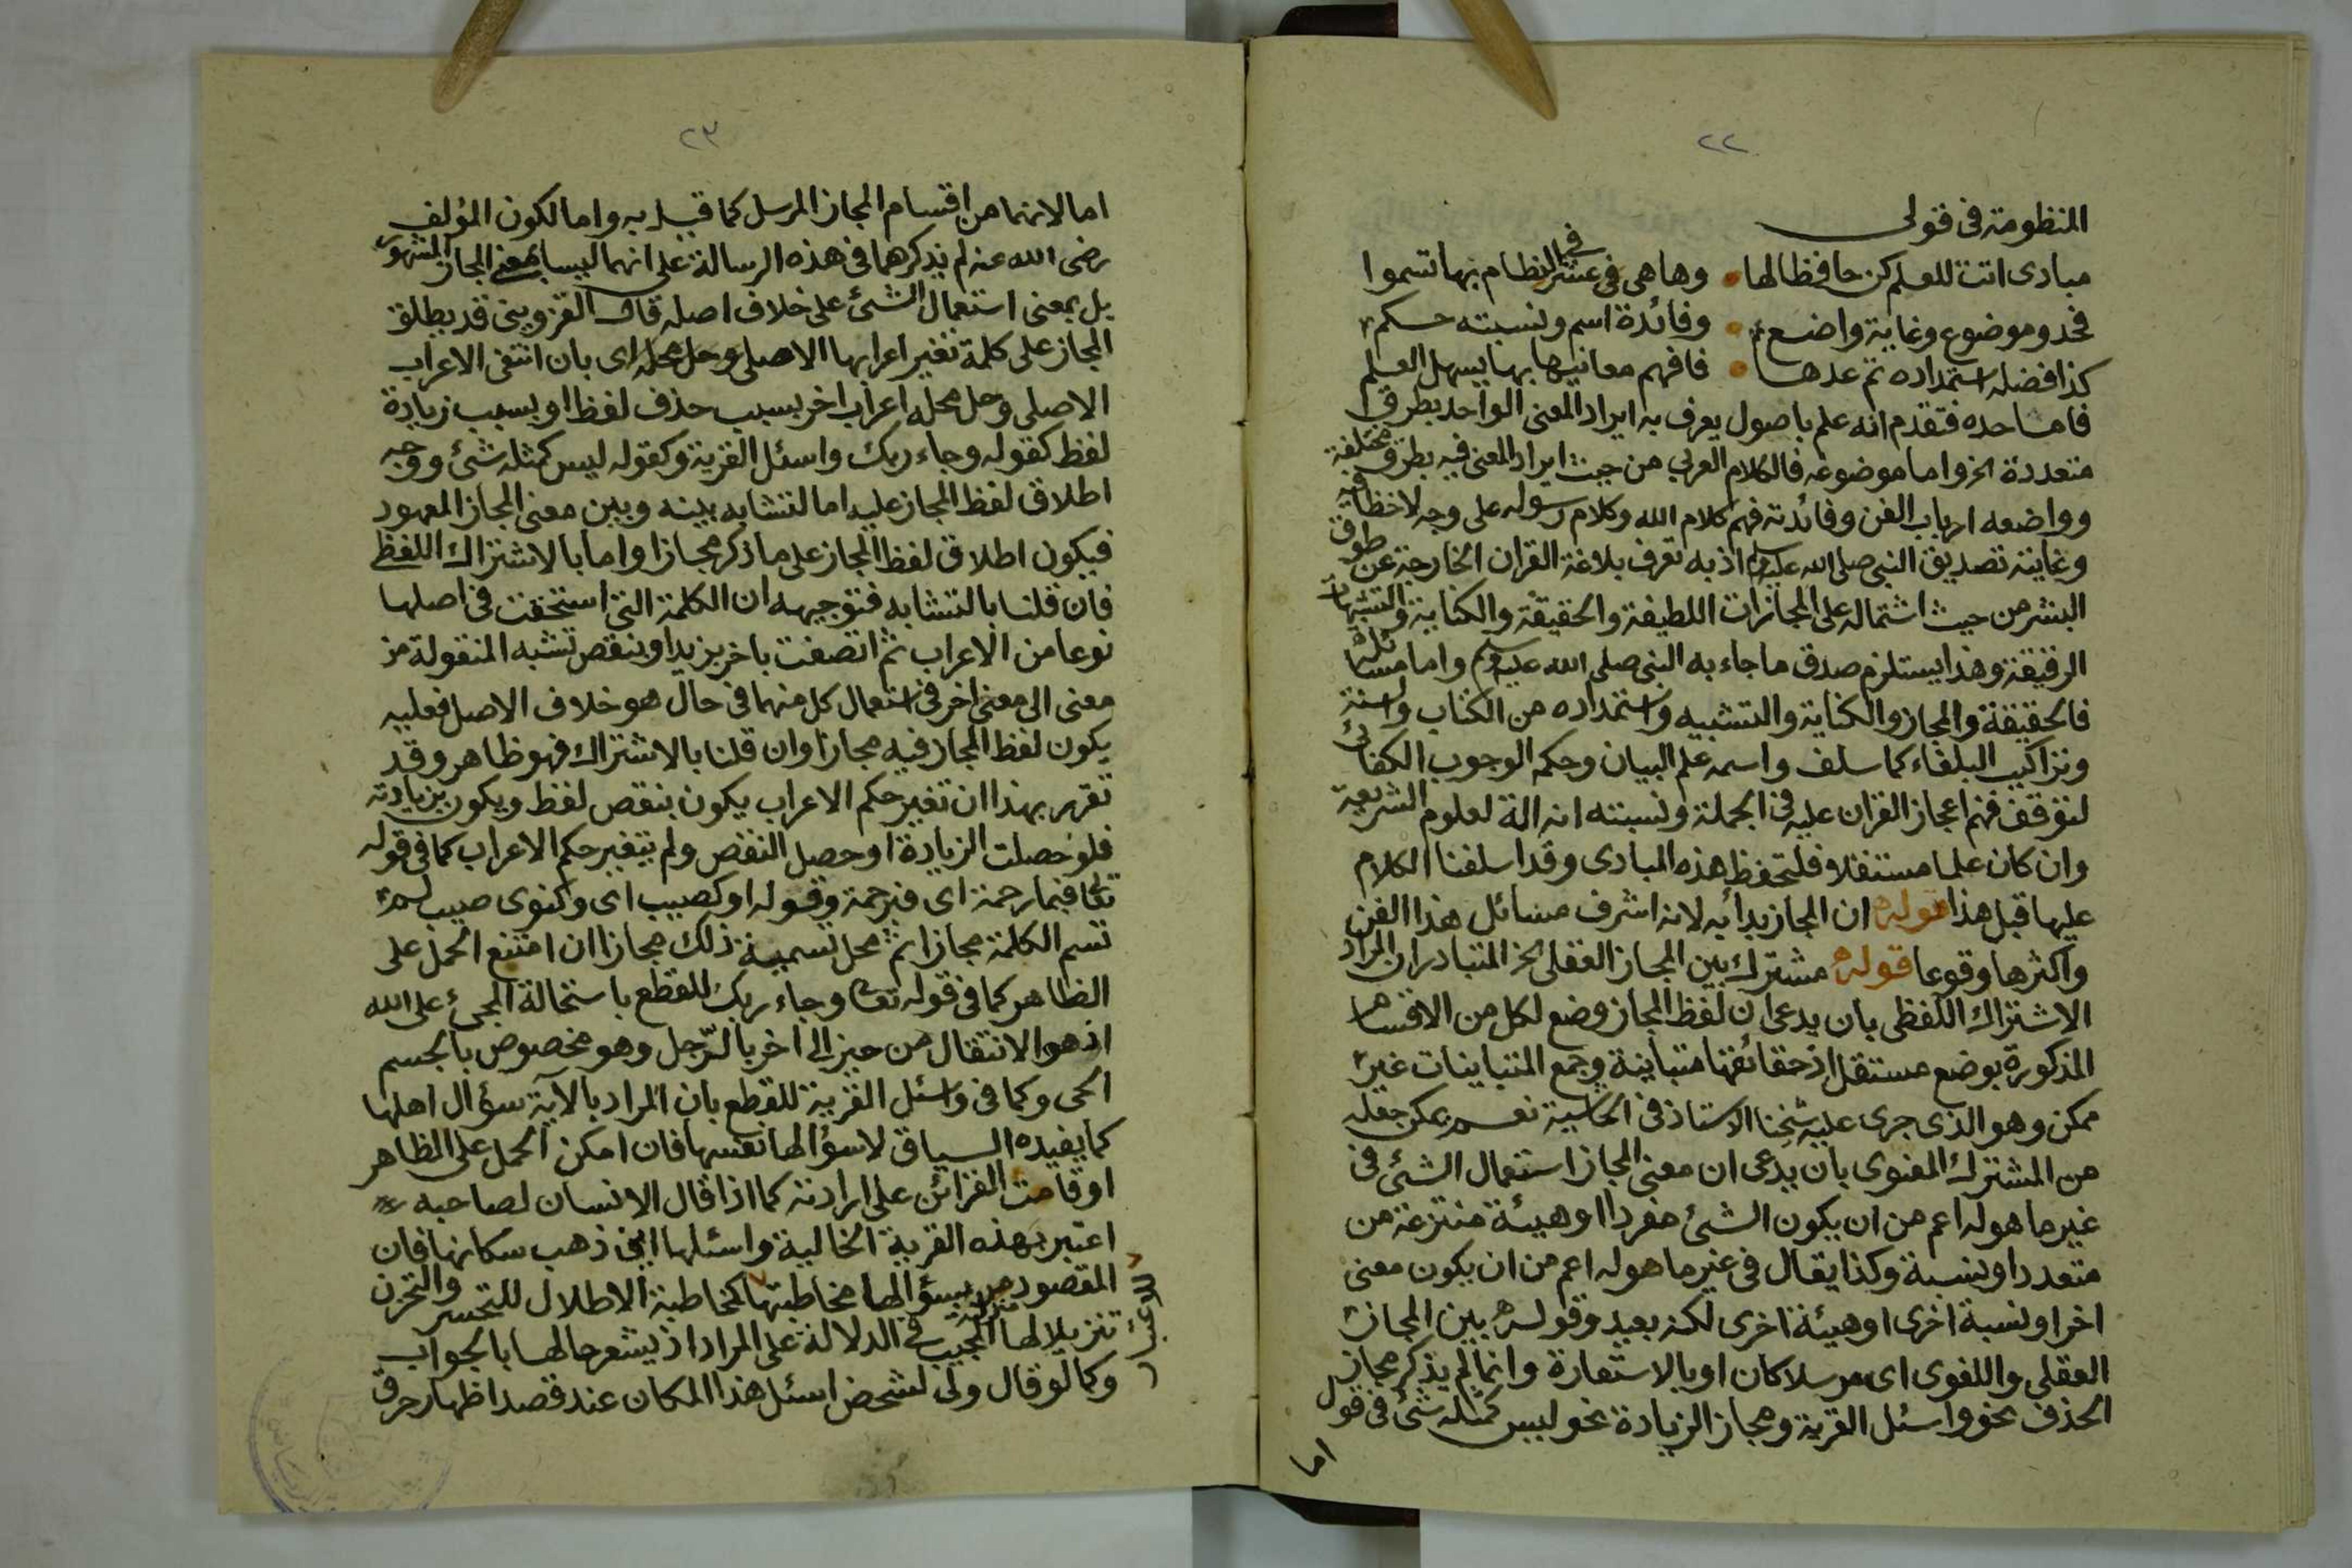 ٢٢
المنظومة فى قولى
مبادى اتت للعلم كن حافظا لها وها هى فى عشر النظام بها تسموا
فحد وموضوع وغاية واضع وفائدة اسم ونسبته حكم
كذا فضله استمداده تم عدها فافهم معانيها بها يسهل العلم
فاما حده فتقدم انه علم باصول يعرف به ايراد المعنى الواحد بطرق
متعددة الخ واما موضوعه فالكلام العربي من حيث ايراد المعنى فيه بطرق مختلفة
وواضعه ارباب الفن وفائدته فهم كلام الله وكلام رسوله على وجه لا خطأ فيه
وغايته تصديق النبى صلى الله عليه وسلم اذ به تعرف بلاغة القران الخارجة عن طوق
البشر من حيث اشتماله على المجازات اللطيفة والحقيقة والكناية والتشبيهات
الرقيقة وهذا يستلزم صدق ما جاء به النبى صلى الله عليه وسلم واما مسائله
فالحقيقة والمجاز والكناية والتشبيه واستمداده من الكتاب والسنة
وتراكيب البلغاء كما سلف واسمه علم البيان وحكمه الوجوب الكفائى
لتوقف فهم اعجاز القران عليه فى الجملة ونسبته انه الة لعلوم الشريعة
وان كان علما مستقلا فلتحفظ هذه المبادى وقد اسلفنا الكلام
عليها قبل هذا قوله ان المجاز بدأ به لانه اشرف مسائل هذا الفن
واكثرها وقوعا قوله مشترك بين المجاز العقلى الخ المتبادر ان المراد
الاشتراك اللفظى بان يدعى ان لفظ المجاز وضع لكل من الاقسام
المذكورة بوضع مستقل اذ حقائقها متباينة وجمع المتباينات غير
ممكن وهو الذى جرى عليه شيخنا الاستاذ فى الحاشية نعم يمكن جعله
من المشترك المعنوى بان يدعى ان معنى المجاز استعمال الشئ فى
غير ما هو له اعم من ان يكون الشئ مفردا او هيئة منتزعة من
متعدد او نسبة وكذا يقال فى غير ما هو له اعم من ان يكون معنى
اخر او نسبة اخرى او هيئة اخرى لكنه بعيد وقوله بين المجاز
العقلى واللغوى اى مرسلا كان او بالاستعارة وانما لم يذكر مجاز
الحذف نحو واسئل القرية ومجاز الزيادة نحو ليس كمثله شئ فى قول
اما
٢٣
اما لانهما من اقسام المجاز المرسل كما قيل به واما لكون المؤلف
رضى الله عنه لم يذكرهما فى هذه الرسالة على انهما ليسا بمعنى المجاز المشهور
بل بمعنى استعمال الشئ على خلاف اصله قال القزوينى قد يطلق
المجاز على كلمة تغير اعرابها الاصلى وحل محله اى بان انتفى الاعراب
الاصلى وحل محله اعراب اخر بسبب حذف لفظ او بسبب زيادة
لفظ كقوله وجاء ربك واسئل القرية وكقوله ليس كمثله شئ ووجه
اطلاق لفظ المجاز عليه اما لتشابه بينه وبين معنى المجاز المعهود
فيكون اطلاق لفظ المجاز على ما ذكر مجازا واما بالاشتراك اللفظى
فان قلنا بالتشابه فتوجيهه ان الكلمة التى استحقت فى اصلها
نوعا من الاعراب ثم اتصفت باخر بزيد او بنقص تشبه المنقولة من
معنى الى معنى اخر فى استعمال كل منهما فى حال هو خلاف الاصل فعليه
يكون لفظ المجاز فيه مجازا وان قلنا بالاشتراك فهو ظاهر وقد
تقرر بهذا ان تغير حكم الاعراب يكون بنقص لفظ ويكون بزيادته
فلو حصلت الزيادة او حصل النقص ولم يتغير حكم الاعراب كما فى قوله
تعالى فبما رحمة اى فبرحمة وقوله او كصيب اى وكذوى صيب لم
تسم الكلمة مجازا ثم محل تسمية ذلك مجازا ان امتنع الحمل على
الظاهر كما فى قوله تعالى وجاء ربك للقطع باستحالة المجئ على الله
اذ هو الانتقال من حيز الى اخر بالرّجل وهو مخصوص بالجسم
الحى وكما فى واسئل القرية للقطع بان المراد بالآية سؤال اهلها
كما يفيده السياق لا سؤالها نفسها فان امكن الحمل على الظاهر
او قامت القرائن على ارادته كما اذا قال الانسان لصاحبه
اعتبر بهذه القرية الخالية واسئلها اين ذهب سكانها فان
المقصود من سؤالها مخاطبتها كمخاطبة الاطلال للتحسر والتحزن
للاعتبار
تنزيلا لها منزلة المجيب فى الدلالة على المراد اذ يشعر حالها بالجواب
وكما لو قال ولى لشخص اسئل هذا المكان عند قصد اظهار خرق